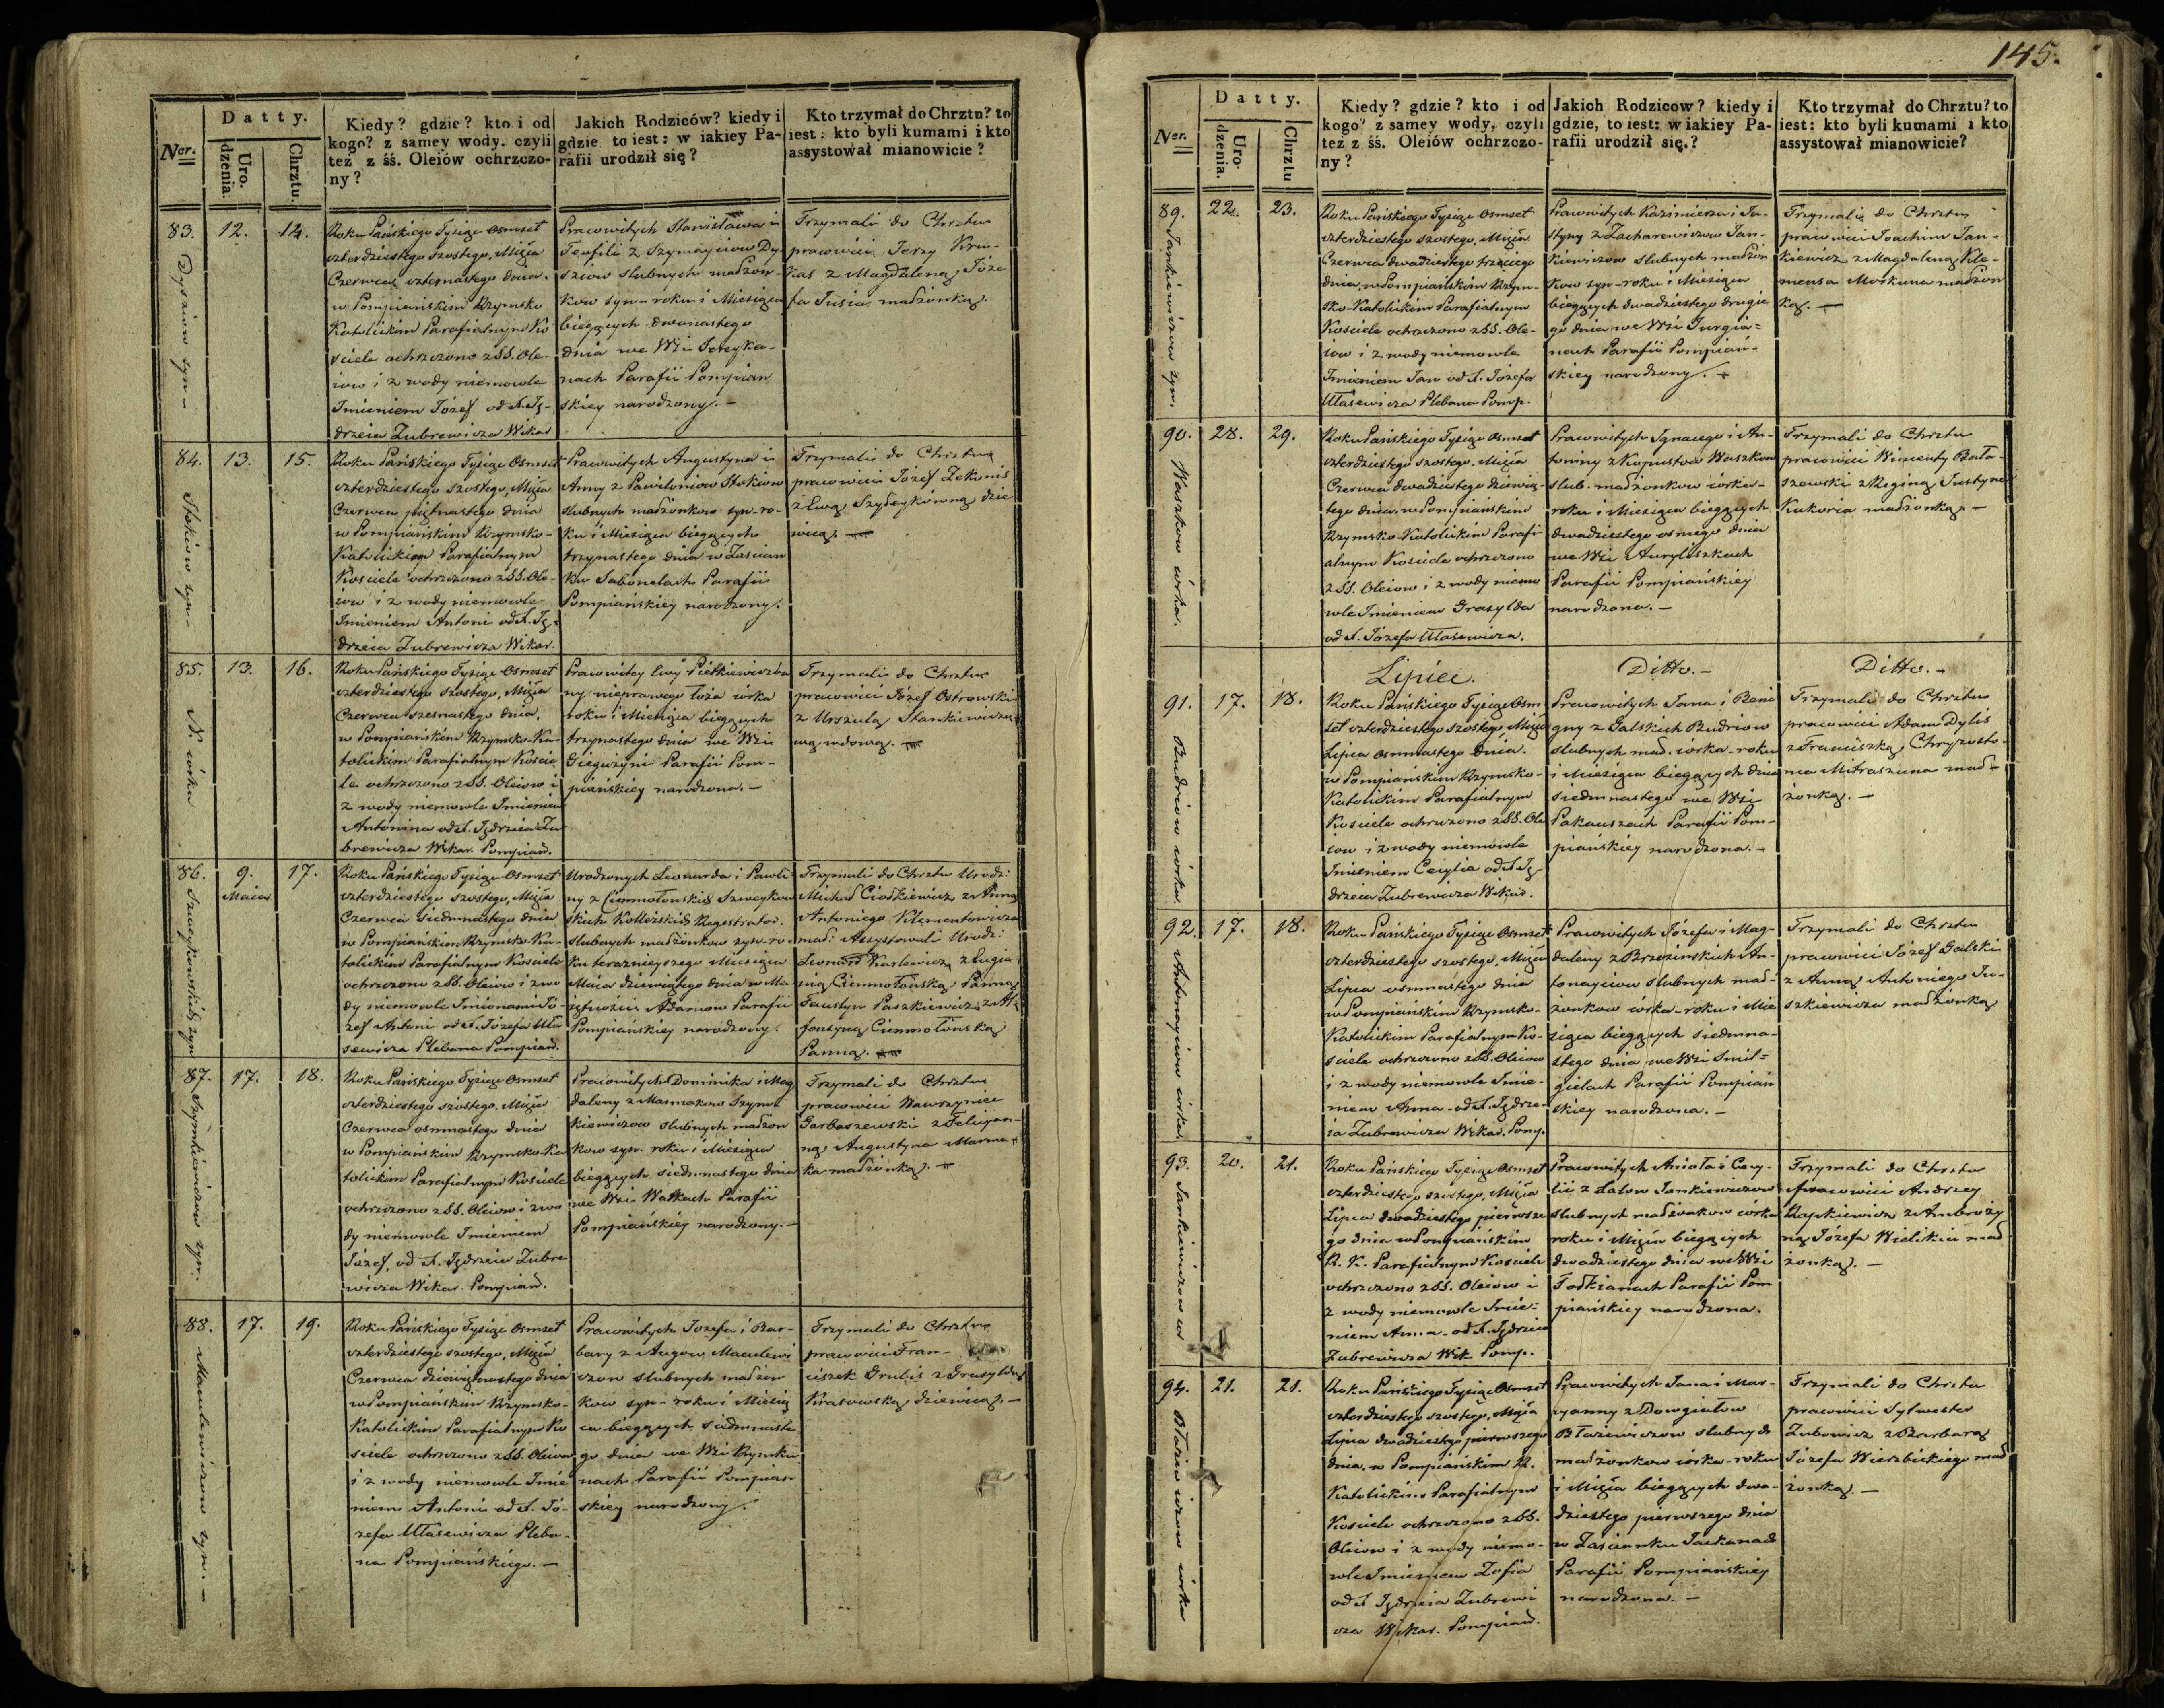 Nor.
Datty.
Uro.
dzenia.
Chrztu.
Kiedy? gdzie? kto i od
kogo? z samey wody, czyli
też z śś. Oleiów ochrzczo-
ny?
Jakich Rodziców? kiedy i
gdzie, to iest: w iakiey Pa-
rafii urodził się?
Kto trzymał do Chrztu? to
iest: kto byli kumami i kto
assystował mianowicie?
83.
12.
14.
Roku Pańskiego Tysiąc Osmset
czterdziestego szostego, Mięsia
Czerwca czternastego dnia
w Pompiańskim Rzymsko
Katolickim Parafialnym Ko
sciele ochrzczono z SS. Ole-
iow i z wody niemowle
Imieniem Józef od X. Ję-
drzeia Zubrewicza Wikar
Pracowitych Stanisława i
Teofili z Szymayciow Dy-
sziow slubnych małżon-
kow syn - roku i Miesiąca
biegących dwonastego
dnia we Wsi
nach Parafii Pompian
skiey narodzony. -
Trzymali do Chrztu
pracowici Jerzy Kru-
kas z Magdaleną Józe
fa Tusia małżonką.
84.
13.
15.
Stokiow syn -
Roku Pańskiego Tysiąc Osmset
czterdziestego szostego, Mięsia
Czerwca piętnastego dnia
w Pompiańskim Rzymsko-
Katolickim Parafialnym
Kosciele ochrzczono z SS. Ole-
iow i z wody niemowle
Imieniem Antoni od X. Ję-
drzeia Zubrewicza Wikar.
Pracowitych Augustyna i
Anny z Pawiloniow Stokiow
slubnych małżonkow syn - ro-
ku i Miesiąca biegących
trzynastego dnia w Zascian
ku Sabonelach Parafii
Pompiańskiey narodzony.
Trzymali do Chrztu
pracowici Józef Zekonis
z Ewą Szyleykówną dzie
wicą. -
85.
13.
16.
N. córka
Roku Pańskiego Tysiąc Osmset
czterdziestego szostego, Mięsia
Czerwca szesnastego dnia,
w Pompiańskim Rzymsko-Ka-
tolickim Parafialnym Koscie
le ochrzczono z SS. Oleiow i
z wody niemowle Imieniem
Antonina od X. Jędrzeia Zu
brewicza Wikar. Pompian.
Pracowitey Ewy Pietkiewiczów
ny nieprawego łoża córka
roku i Miesiąca biegących
trzynastego dnia we Wsi
Gieguzyni Parafii Pom-
piańskiey narodzona. -
Trzymali do Chrztu
pracowici Józef Ostrowski
z Urszulą Stankiewiczo
wą wdową. -
86.
9.
Maia
17.
Szweykowskich syn
Roku Pańskiego Tysiąc Osmset
czterdziestego szostego, Mięsia
Czerwca siedmnastego dnia
w Pompiańskim Rzymsko-Ka-
tolickim Parafialnym Kosciele
ochrzczono z SS. Oleiow i z wo
dy niemowle Imionami Jó-
zef Antoni od X. Józefa Ula
sewicza Plebana Pompian.
Urodzonych Leonarda i Pauli-
ny z Ciemnołonskich Szweykow
skich Kolleżskich Registrator.
slubnych małżonkow syn - ro-
ku terazniejszego Miesiąca
Maia dziewiątego dnia w Ma
iętności Adamow Parafii
Pompiańskiey narodzony.
Trzymali do Chrztu Urodz:
Michał Ciotkiewicz z Anną
Antoniego Klementowicza
mał: Assystowali Urodz:
Leonard Karlewicz z Euge
nią Ciemnołońską Panną
Faustyn Paszkiewicz z Al
fonsyną Ciemnołońską
Panną. -
87.
17.
18.
Szymkiewiczow syn.
Roku Pańskiego Tysiąc Osmset
czterdziestego szostego, Mięsia
Czerwca osmnastego dnia
w Pompiańskim Rzymsko-Ka
tolickim Parafialnym Kosciele
ochrzczono z SS. Oleiow i z wo
dy niemowle Imieniem
Józef, od X. Jędrzeia Zubre
wicza Wikar. Pompian.
Pracowitych Dominika i Mag
daleny z Marmakow Szym
kiewiczow slubnych małżon
kow syn. roku i Miesiąca
biegących siedmnastego dnia
we Wsi Watkach Parafii
Pompiańskiey narodzony. -
Trzymali do Chrztu
pracowici Wawrzyniec
Garbaszewski z Felicyan-
ną Augustyna Marma-
ka małżonką. -
88.
17.
19.
Maculewiczow syn. -
Roku Pańskiego Tysiąc Osmset
czterdziestego szostego, Mięsia
Czerwca dziewiętnastego dnia
w Pompiańskim Rzymsko-
Katolickim Parafialnym Ko
sciele ochrzczono z SS. Oleiow
i z wody niemowle Imie
niem Antoni od X. Jó-
zefa Ulasewicza Pleba-
na Pompiańskiego. -
Pracowitych Jozefa i Bar-
bary z Augow Maculewi
czow slubnych małżon
kow syn - roku i Miesią
ca biegących siedmnaste
go dnia we Wsi Rymku
nach Parafii Pompian
skiey narodzony.
Trzymali do Chrztu
pracowici Fran-
ciszek Grulis z Grasyldą
Krasowską dziewicą. -
145.
Nor.
Datty.
Uro-
dzenia.
Chrztu
Kiedy? gdzie? kto i od
kogo? z samey wody, czyli
też z śś. Oleiów ochrzczo-
ny?
Jakich Rodzicow? kiedy i
gdzie, to iest: w iakiey Pa-
rafii urodził się?
Kto trzymał do Chrztu? to
iest: kto byli kumami i kto
assystował mianowicie?
89.
22.
23.
Jankiewiczow syn,
Roku Pańskiego Tysiąc Osmset
czterdziestego szostego, Mięsia
Czerwca dwadziestego trzeciego
dnia, w Pompiańskim Rzym-
sko-Katolickim Parafialnym
Kosciele ochrzczono z SS. Ole-
iow i z wody niemowle
Imieniem Jan od X. Józefa
Ulasewicza Plebana Pomp.
Pracowitych Kazimierza i Ju-
styny z Zacharewiczow Jan-
kiewiczow slubnych małżon
kow syn - roku i Miesiąca
biegących dwadziestego drugie
go dnia we Wsi Jurgia-
nach Parafii Pompiań-
skiey narodzony. -
Trzymali do Chrztu
pracowici Joachim Jan-
kiewicz z Magdaleną Kle-
mensa Morkuna małżon
ką. -
90.
28.
29.
Waszkow córka.
Roku Pańskiego Tysiąc Osmset
czterdziestego szostego, Mięsia
Czerwca dwadziestego dziewią-
tego dnia, w Pompiańskim
Rzymsko-Katolickim Parafi
alnym Kosciele ochrzczono
z SS. Oleiow i z wody niemo
wle Imieniem Grasylda
od X. Józefa Ulasewicza.
Pracowitych Ignacego i An-
toniny z Kopustow Waszkow
slub. małżonkow córka -
roku i Miesiąca biegących
dwadziestego osmego dnia
we Wsi Auryliszkach
Parafii Pompiańskiey
narodzona. -
Trzymali do Chrztu
pracowici Wincenty Bała-
szewski z Reginą Justyna
Kukoria małżonką. -
Lipiec.
Ditto. -
Ditto. -
91.
17.
18.
Budriow córka
Roku Pańskiego Tysiąc Osm
set czterdziestego szostego, Mięsia
Lipca osmnastego dnia.
w Pompiańskim Rzymsko-
Katolickim Parafialnym
Kosciele ochrzczono z SS. Ole
iow i z wody niemowle
Imieniem Cecylia od X. Ję-
drzeia Zubrewicza Wikar.
Pracowitych Jana i Beni
gny z Galskich Budriow
slubnych mał. córka - roku
i Miesiąca biegących dnia
siedmnastego we Wsi
Pakauszach Parafii Pom-
piańskiey narodzona. -
Trzymali do Chrztu
pracowici Adam Dylis
z Franciszką Chryzosto-
ma Mitraszuna mał-
żonką. -
92.
17.
18.
Antonayciow córka
Roku Pańskiego Tysiąc Osmset
czterdziestego szostego, Mięsia
Lipca osmnastego dnia
w Pompiańskim Rzymsko-
Katolickim Parafialnym Ko-
sciele ochrzczono z SS. Oleiow
i z wody niemowle Imie-
niem Anna - od X. Jędrze-
ia Zubrewicza Wikar. Pomp.
Pracowitych Józefa i Mag-
daleny z Brzezinskich An-
tonayciow slubnych mał-
żonkow córka - roku i Mie
siąca biegących siedmna-
stego dnia we Wsi Smil-
gielach Parafii Pompiań
skiey narodzona. -
Trzymali do Chrztu
pracowici Józef Galski
z Anną Antoniego Ju-
szkiewicza małżonką
93.
20.
21.
Jankiewiczow
Roku Pańskiego Tysiąc Osmset
czterdziestego szostego, Mięsia
Lipca dwadziestego pierwsze
go dnia w Pompiańskim
R. K. Parafialnym Kosciele
ochrzczono z SS. Oleiow i
z wody niemowle Imie-
niem Anna - od X. Jędrzeia
Zubrewicza Wik. Pomp.
Pracowitych Anioła i Cecy-
lii z Latow Jankiewiczow
slubnych małżonkow córka
roku i Mięsia biegących
dwadziestego dnia we Wsi
Todkianach Parafii Pom
piańskiey narodzona.
Trzymali do Chrztu
Pracowici Andrzey
Rapkiewicz z Ambroży
ną Józefa Wielikia mał
żonką. -
94.
21.
21.
Błażewiczow córka
Roku Pańskiego Tysiąc Osmset
czterdziestego szostego, Mięsia
Lipca dwadziestego pierwszego
dnia, w Pompiańskim R.
Katolickim Parafialnym
Kosciele ochrzczono z SS.
Oleiow i z wody niemo-
wle Imieniem Zofia
od X Jędrzeia Zubrewi
cza Wikar. Pompian.
Pracowitych Jana i Mar-
yanny z Dowgiałow
Błażewiczow slubnych
małżonkow córka - roku
i Mięsia biegących dwa-
dziestego pierwszego dnia
w Zascianku
Parafii Pompiańskiey
narodzona. -
Trzymali do Chrztu
pracowici Sylwester
Zubowicz z Barbarą
Józefa Wierzbickiego mał
żonką. -